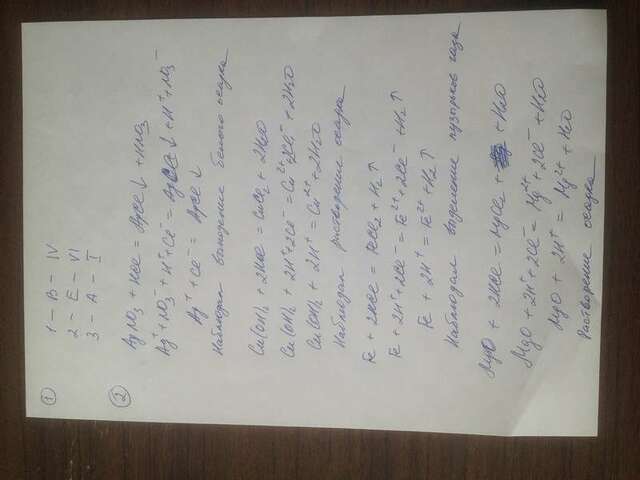 ①
1 – B – IV
2 – E – VI
3 – A – I
②
AgNO₃ + HCl = AgCl↓ + HNO₃
Ag⁺ + NO₃⁻ + H⁺ + Cl⁻ = AgCl↓ + H⁺ + NO₃⁻
Ag⁺ + Cl⁻ = AgCl↓
Наблюдал выпадение белого осадка
Cu(OH)₂ + 2HCl = CuCl₂ + 2H₂O
Cu(OH)₂ + 2H⁺ + 2Cl⁻ = Cu²⁺ + 2Cl⁻ + 2H₂O
Cu(OH)₂ + 2H⁺ = Cu²⁺ + 2H₂O
Наблюдал растворение осадка
Fe + 2HCl = FeCl₂ + H₂↑
Fe + 2H⁺ + 2Cl⁻ = Fe²⁺ + 2Cl⁻ + H₂↑
Fe + 2H⁺ = Fe²⁺ + H₂↑
Наблюдал выделение пузырьков газа
MgO + 2HCl = MgCl₂ + + H₂O
MgO + 2H⁺ + 2Cl⁻ = Mg²⁺ + 2Cl⁻ + H₂O
MgO + 2H⁺ = Mg²⁺ + H₂O
Растворение осадка